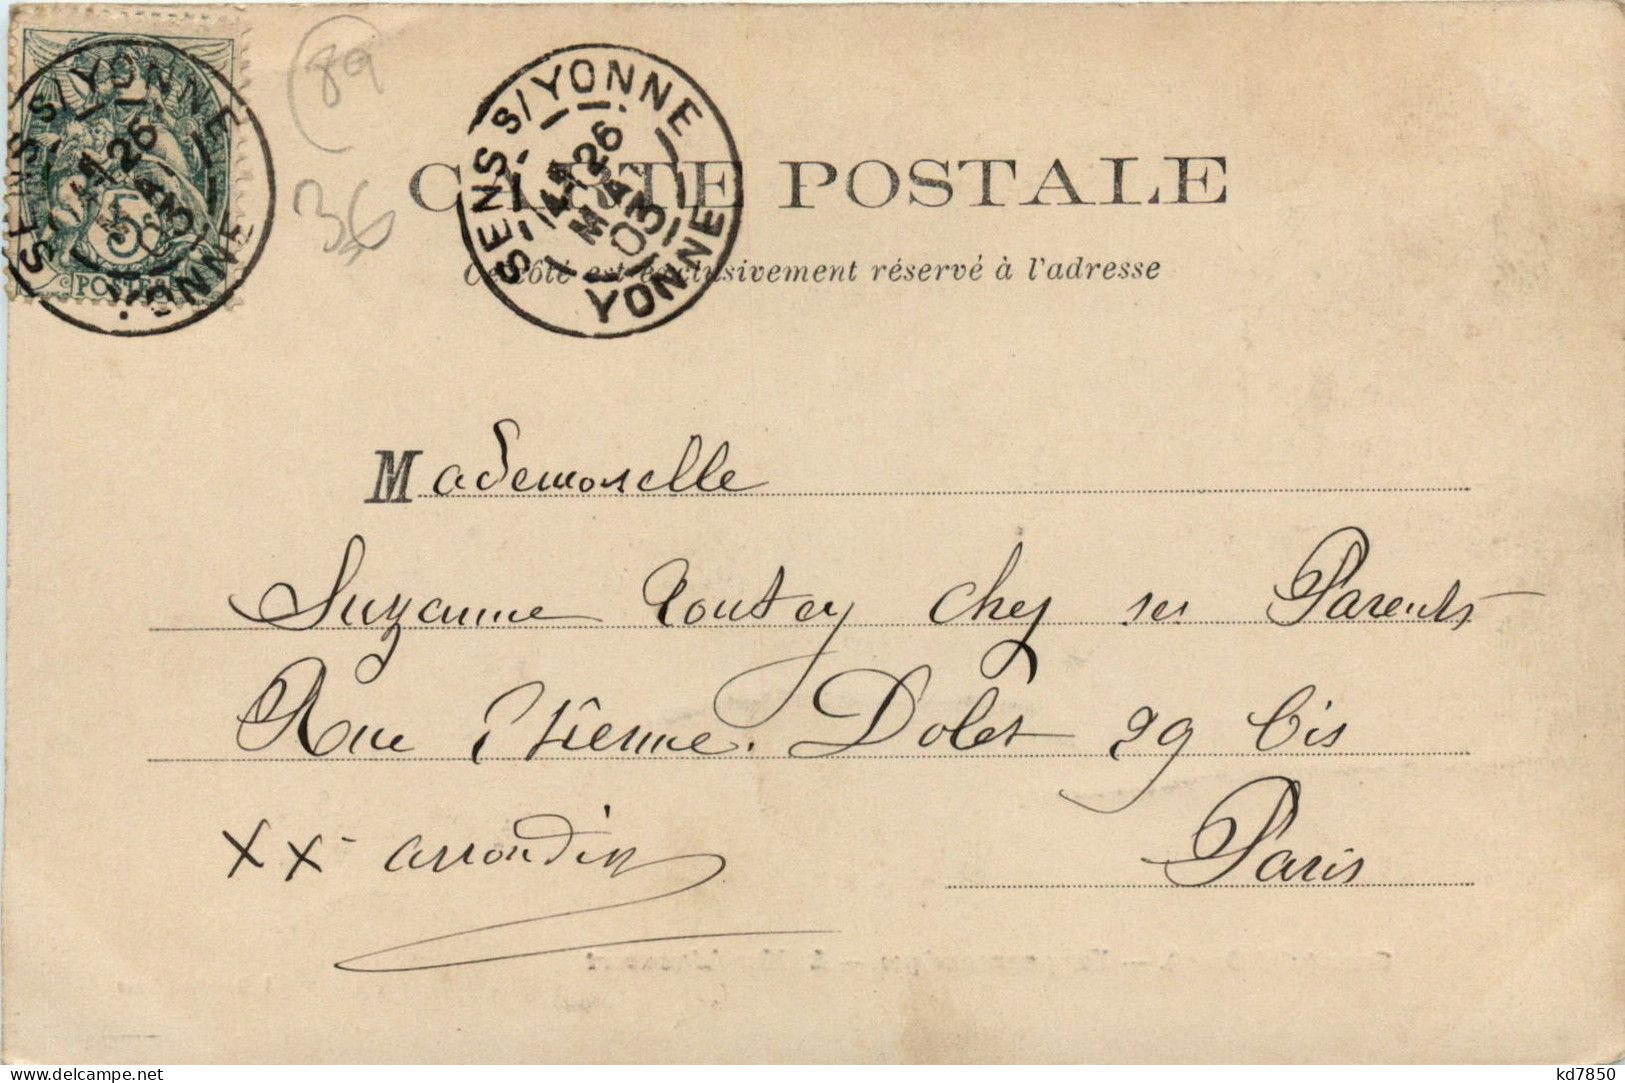 SENS S/YONNE
26
MAI
03
YONNE
5
POSTES
89
36
SENS S/YONNE
26
MAI
03
YONNE
CARTE POSTALE
Ce côté est exclusivement réservé à l'adresse
Mademoiselle
Suzanne chez ses Parents
Rue Etienne. Dolet 29 bis
XX arrondis Paris
kd7850